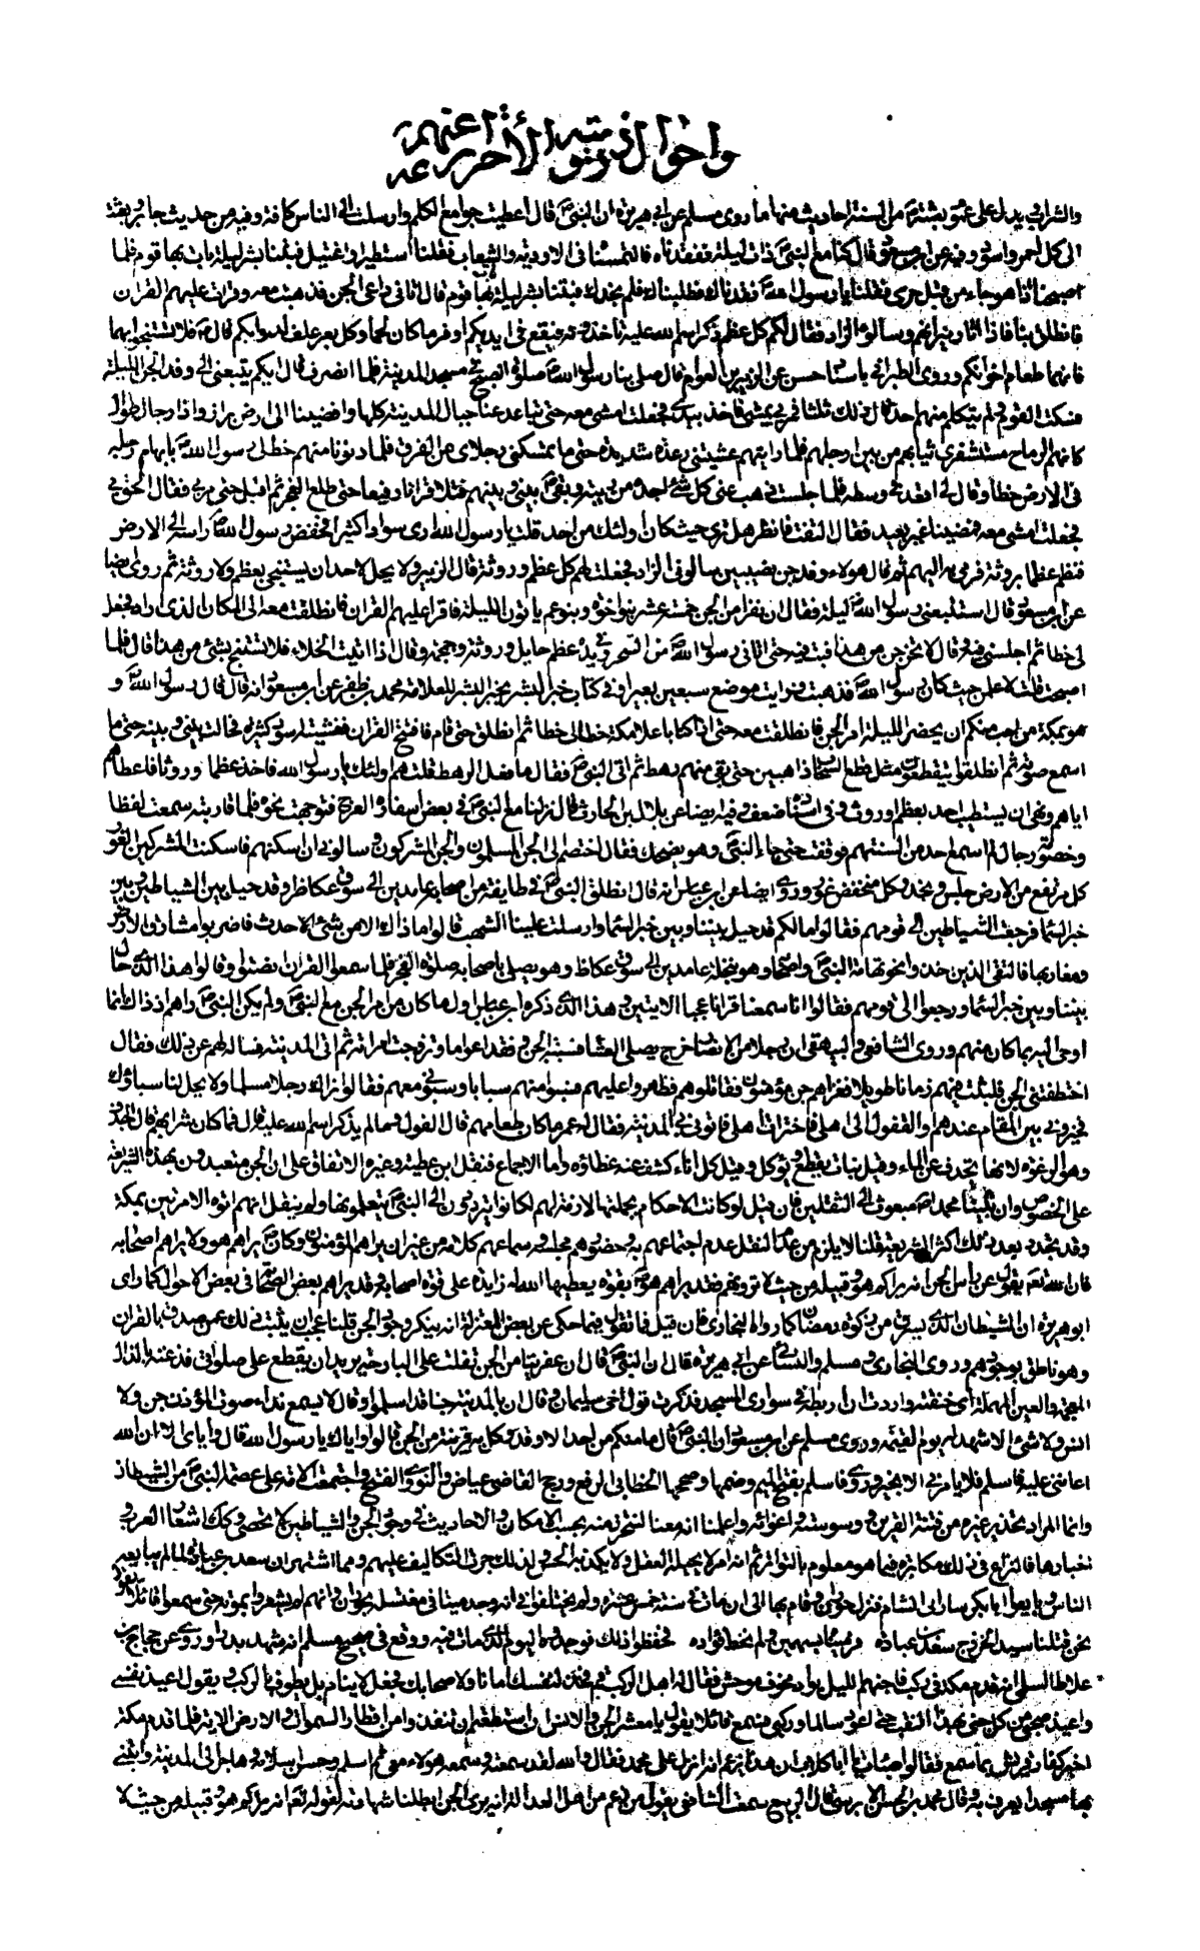 والشراب يدل على عموم بعثته من السنة احاديث منها ما روى مسلم عن ابي هريرة ان النبي قال اعطيت جوامع الكلم وارسلت الى الناس كافة وفيه من حديث جابر وبعثت
الى كل احمر واسود وفيه عن ابن مسعود قال كنا مع النبي ذات ليلة ففقدناه فالتمسناه فى الاودية والشعاب فقلنا استطير او اغتيل فبتنا بشر ليلة بات بها قوم فلما
اصبحنا اذا هو جاء من قبل حرى فقلنا يا رسول الله فقدناك فطلبناك فلم نجدك فبتنا بشر ليلة بات بها قوم قال اتانى داعى الجن فذهبت معه وقرات عليهم القران
فانطلق بنا فاذا اثار نيرانهم وسالوه الزاد فقال لكم كل عظم ذكر اسم الله عليه تاخذونه فيقع فى ايديكم اوفر ما كان لحما وكل بعر علف لدوابكم قال فلا تستنجوا بهما
فانهما طعام اخوانكم وروى الطبرانى باسناد حسن عن الزبير بن العوام قال صلى بنا رسول الله صلوة الصبح في مسجد المدينة فلما انصرف قال ايكم يتبعنى الى وفد الجن الليلة
فسكت القوم فلم يتكلم منهم احد قال ذلك ثلثا فمر بى يمشى فاخذ بيدى فجعلت امشى معه حتى تباعد عنا جبال المدينة كلها وافضينا الى ارض براز واذا رجال طوال
كانهم الرماح مستثفرى ثيابهم من بين ارجلهم فلما رايتهم غشيتنى رعدة شديدة حتى ما تمسكنى رجلاى من الفرق فلما دنونا منهم خط لى رسول الله بابهام رجله
فى الارض خطا وقال لى اقعد في وسطه فلما جلست ذهب عنى كل شئ اجده من ريبة وبقى بينى وبينهم فتلا قرانا رفيعا حتى طلع الفجر ثم اقبل حتى مر بى فقال الحق بى
فجعلت امشى معه فمضينا غير بعيد فقال التفت فانظر هل ترى حيث كان اولئك من احد قلت يا رسول الله ارى سوادا كثيرا فخفض رسول الله راسه الى الارض
فنظم عظما بروثة فرمى به اليهم ثم قال هولاء وفد جن نصيبين سالونى الزاد فجعلت لهم كل عظم وروثة قال الزبير ولا يحل لاحد ان يستنجى بعظم ولا روثة ثم روى ايضا
عن ابن مسعود قال استتبعنى رسول الله ليلة فقال ان نفرا من الجن خمسة عشر بنو اخوة وبنو عم ياتون الليلة فاقرا عليهم القران فانطلقت معه الى المكان الذى اراد فجعل
لى خطا ثم اجلسنى فيه وقال لا تخرجن من هذا فبت فيه حتى اتانى رسول الله من السحر وفى يده عظم حايل وروثة وحممة وقال اذا اتيت الخلاء فلا تستنج بشئ من هذا قال فلما
اصبحت قلت لاعلمن حيث كان رسول الله فذهبت فرايت موضع سبعين بعيرا وفى كتاب خير البشر بخير البشر للعلامة محمد بن ظفر عن ابن مسعود انه قال قال رسول الله و
هو بمكة من احب منكم ان يحضر الليلة امر الجن فانطلقت معه حتى اذا كنا باعلا مكة خط لى خطا ثم انطلق حتى قام فافتتح القران فغشيته اسودة كثيرة فحالت بينى وبينه حتى ما
اسمع صوته ثم انطلقوا يتقطعون مثل قطع السحاب ذاهبين حتى بقى منهم رهط ثم اتى النبى فقال ما فعل الرهط قلت هم اولئك يا رسول الله فاخذ عظما وروثا فاعطاهم
اياهم ونهى ان يستطيب احد بعظم او روث وفى اسناده ضعف وفيه ايضا عن بلال بن الحارث قال نزلنا مع النبى فى بعض اسفاره العرج فتوجهت نحوه فلما قاربته سمعت لغطا
وخصومة رجال لم اسمع احد من السنتهم فوقفت حتى جاء النبى وهو يضحك فقال اختصم الى الجن المسلمون والجن المشركون وسالونى ان اسكنهم فاسكنت المشركين الغور
كل مرتفع من الارض جلس ونجد وكل منخفض غور وروى ايضا عن ابن عباس انه قال انطلق النبى فى طايفة من اصحابه عامدين الى سوق عكاظ وقد حيل بين الشياطين وبين
خبر السماء فرجعت الشياطين الى قومهم فقالوا مالكم قد حيل بيننا وبين خبر السماء وارسلت علينا الشهب قالوا ما ذاك الا من شئ الا حدث فاضربوا مشارق الارض
ومغاربها فالتقى الذين اخذوا نحو تهامة النبى واصحابه وهو بنخلة عامدين الى سوق عكاظ وهو يصلى باصحابه صلوة الفجر فلما سمعوا القران انصتوا وقالوا هذا الذى حال
بيننا وبين خبر السماء ورجعوا الى قومهم فقالوا انا سمعنا قرانا عجبا الايتين وهذا الذى ذكره ابن عباس اول ما كان من امر الجن مع النبى ولم يكن النبى راهم اذ ذاك انما
اوحى اليه بما كان منهم وروى الشافعى والبيهقى ان رجلا من الانصار خرج يصلى العشاء فسبته الجن وفقد اعواما وتزوجت امراته ثم اتى المدينة فساله عمر عن ذلك فقال
اختطفتنى الجن فلبثت فيهم زمانا طويلا فغزاهم جن مؤمنون فقاتلوهم فظهروا عليهم فسبوا منهم سبايا وسبونى معهم فقالوا نراك رجلا مسلما ولا يحل لنا سباؤك
فخيرونى بين المقام عندهم والقفول الى اهلى فاخترت اهلى فاتوا بى المدينة فقال له عمر ما كان طعامهم قال الفول وما لم يذكر اسم الله عليه قال فما كان شرابهم قال الجدف
وهو الرغوة لانها تجدف عن الماء وقيل نبات يقطع ويوكل وقيل كل اناء كشف عنه غطاؤه واما الاجماع فنقل ابن عطية وغيره الاتفاق على ان الجن متعبدون بهذه الشريعة
على الخصوص وان نبينا محمدا مبعوث الى الثقلين فان قيل لو كانت الاحكام بجملتها لازمة لهم لكانوا يترددون الى النبى يتعلمونها ولم ينقل انهم اتوه الا مرتين بمكة
وقد تجدد بعد ذلك اكثر الشريعة قلنا لا يلزم من عدم النقل عدم اجتماعهم به وحضورهم مجلسه وسماعهم كلامه من غير ان يراهم المؤمنون وكان يراهم هو ولا يراهم اصحابه
فان الله تعم يقول عن راس الجن انه يراكم هو وقبيله من حيث لا ترونهم فقد يراهم هو بقوة يعطيها الله له زايدة على قوة اصحابه وقد يراهم بعض الصحابة فى بعض الاحوال كما راى
ابو هريرة الشيطان الذى يسرق من زكوة رمضان كما رواه البخارى فان قيل فما تقول فيما حكى عن بعض المعتزلة انه ينكر وجود الجن قلنا عجب ان يثبت ذلك عمن صدق بالقران
وهو ناطق بوجودهم وروى البخارى ومسلم والنسائى عن ابى هريرة قال ان النبى قال ان عفريتا من الجن تفلت على البارحة يريد ان يقطع على صلواتى فذعته بالذال
المعجمة والعين المهملة اى خنقته واردت ان اربطه فى سوارى المسجد فذكرت قول اخى سليمان وقال ان بالمدينة جنا قد اسلموا وقال لا يسمع نداء صوت المؤذن جن ولا
انس ولا شئ الا شهد له يوم القيمة وروى مسلم عن ابن مسعود ان النبى قال ما منكم من احد الا وقد وكل به قرينه من الجن قالوا واياك يا رسول الله قال واياى الا ان الله
اعاننى عليه فاسلم فلا يامرنى الا بخير وروى فاسلم بفتح الميم وضمها وصحح الخطابى الرفع ورجح القاضى عياض والنووى الفتح واجتمعت الامة على عصمة النبى من الشيطان
وانما المراد تحذير غيره من فتنة القرين ووسوسته واغوائه واعلمنا انه معنا لنتحرز منه بحسب الامكان والاحاديث فى وجود الجن والشياطين كلا تحصى وكذلك اشعار العرب و
اخبارها فالنزاع فى ذلك مكابرة فيما هو معلوم بالتواتر ثم انه امر لا يحيله العقل ولا يكذبه الحس ولذلك جرت التكاليف عليهم ومما اشتهر ان سعد بن عبادة لما لم يبايعه
الناس وبايعوا ابا بكر سار الى الشام فنزل حوران واقام بها الى ان مات فى سنة خمس عشرة ولم يختلفوا فى انه وجد ميتا فى مغتسله بحوران وانهم لم يشعروا بموته حتى سمعوا قائلا يقول
نحن قتلنا سيد الخزرج سعد بن عبادة فرميناه بسهمين ولم نخط فؤاده فحفظوا ذلك فوجدوه اليوم الذى مات فيه ووقع فى صحيح مسلم انه شهد بدرا وروى عن حجاج بن
علاط السلمى انه قدم مكة فى ركب فاجنهم الليل بواد مخوف موحش فقال له اهل الركب قم فخذ لنفسك امانا ولاصحابك فجعل لا ينام بل يطوف بالركب ويقول اعيذ نفسى
واعيذ صحبى من كل جنى بهذا النقب حتى اعود سالما وركبى فسمع قائلا يقول يا معشر الجن والانس ان استطعتم ان تنفذوا من اقطار السموات والارض الاية فلما قدم مكة
اخبر كفار قريش بما سمع فقالوا صبات يا ابا كلاب ان هذا يزعم انه انزل على محمد فقال والله لقد سمعته وسمعه هؤلاء معى ثم اسلم وحسن اسلامه وهاجر الى المدينة وابتنى
بها مسجدا يعرف به وقال محمد بن الحسن الابرى قال الربيع سمعت الشافعى يقول من زعم من اهل العدالة انه يرى الجن ابطلنا شهادته لقوله تعم انه يراكم هو وقبيله من حيث لا